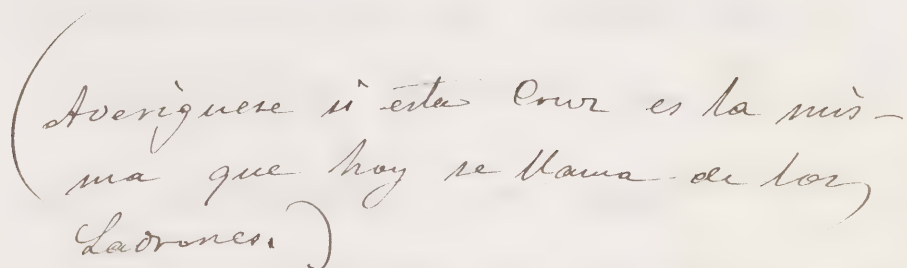 (Averiguese si esta Cruz es la mis-
ma que hoy se llama de los
Ladrones.)